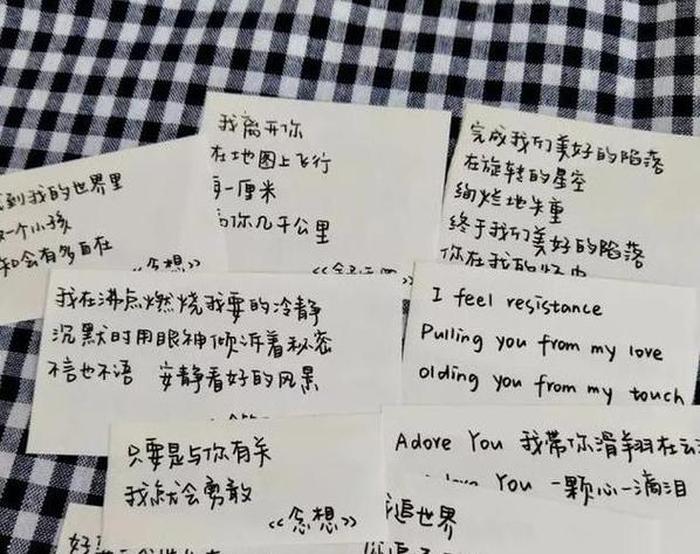 我离开你
在地图上飞行
一厘米
你几千公里
到我的世界里
一个小孩
会有多自在
《念想》
完成我们美好的陷落
在旋转的星空
绚烂地失重
终于我们美好的陷落
你在我的怀中
我在沸点燃烧我要的冷静
沉默时用眼神倾诉着秘密
不言也不语 安静看好的风景
I feel resistance
Pulling you from my love
olding you from my touch
只要是与你有关
我就会勇敢
《念想》
Adore You 我带你滑翔在云
You 一颗心一滴泪
追世界